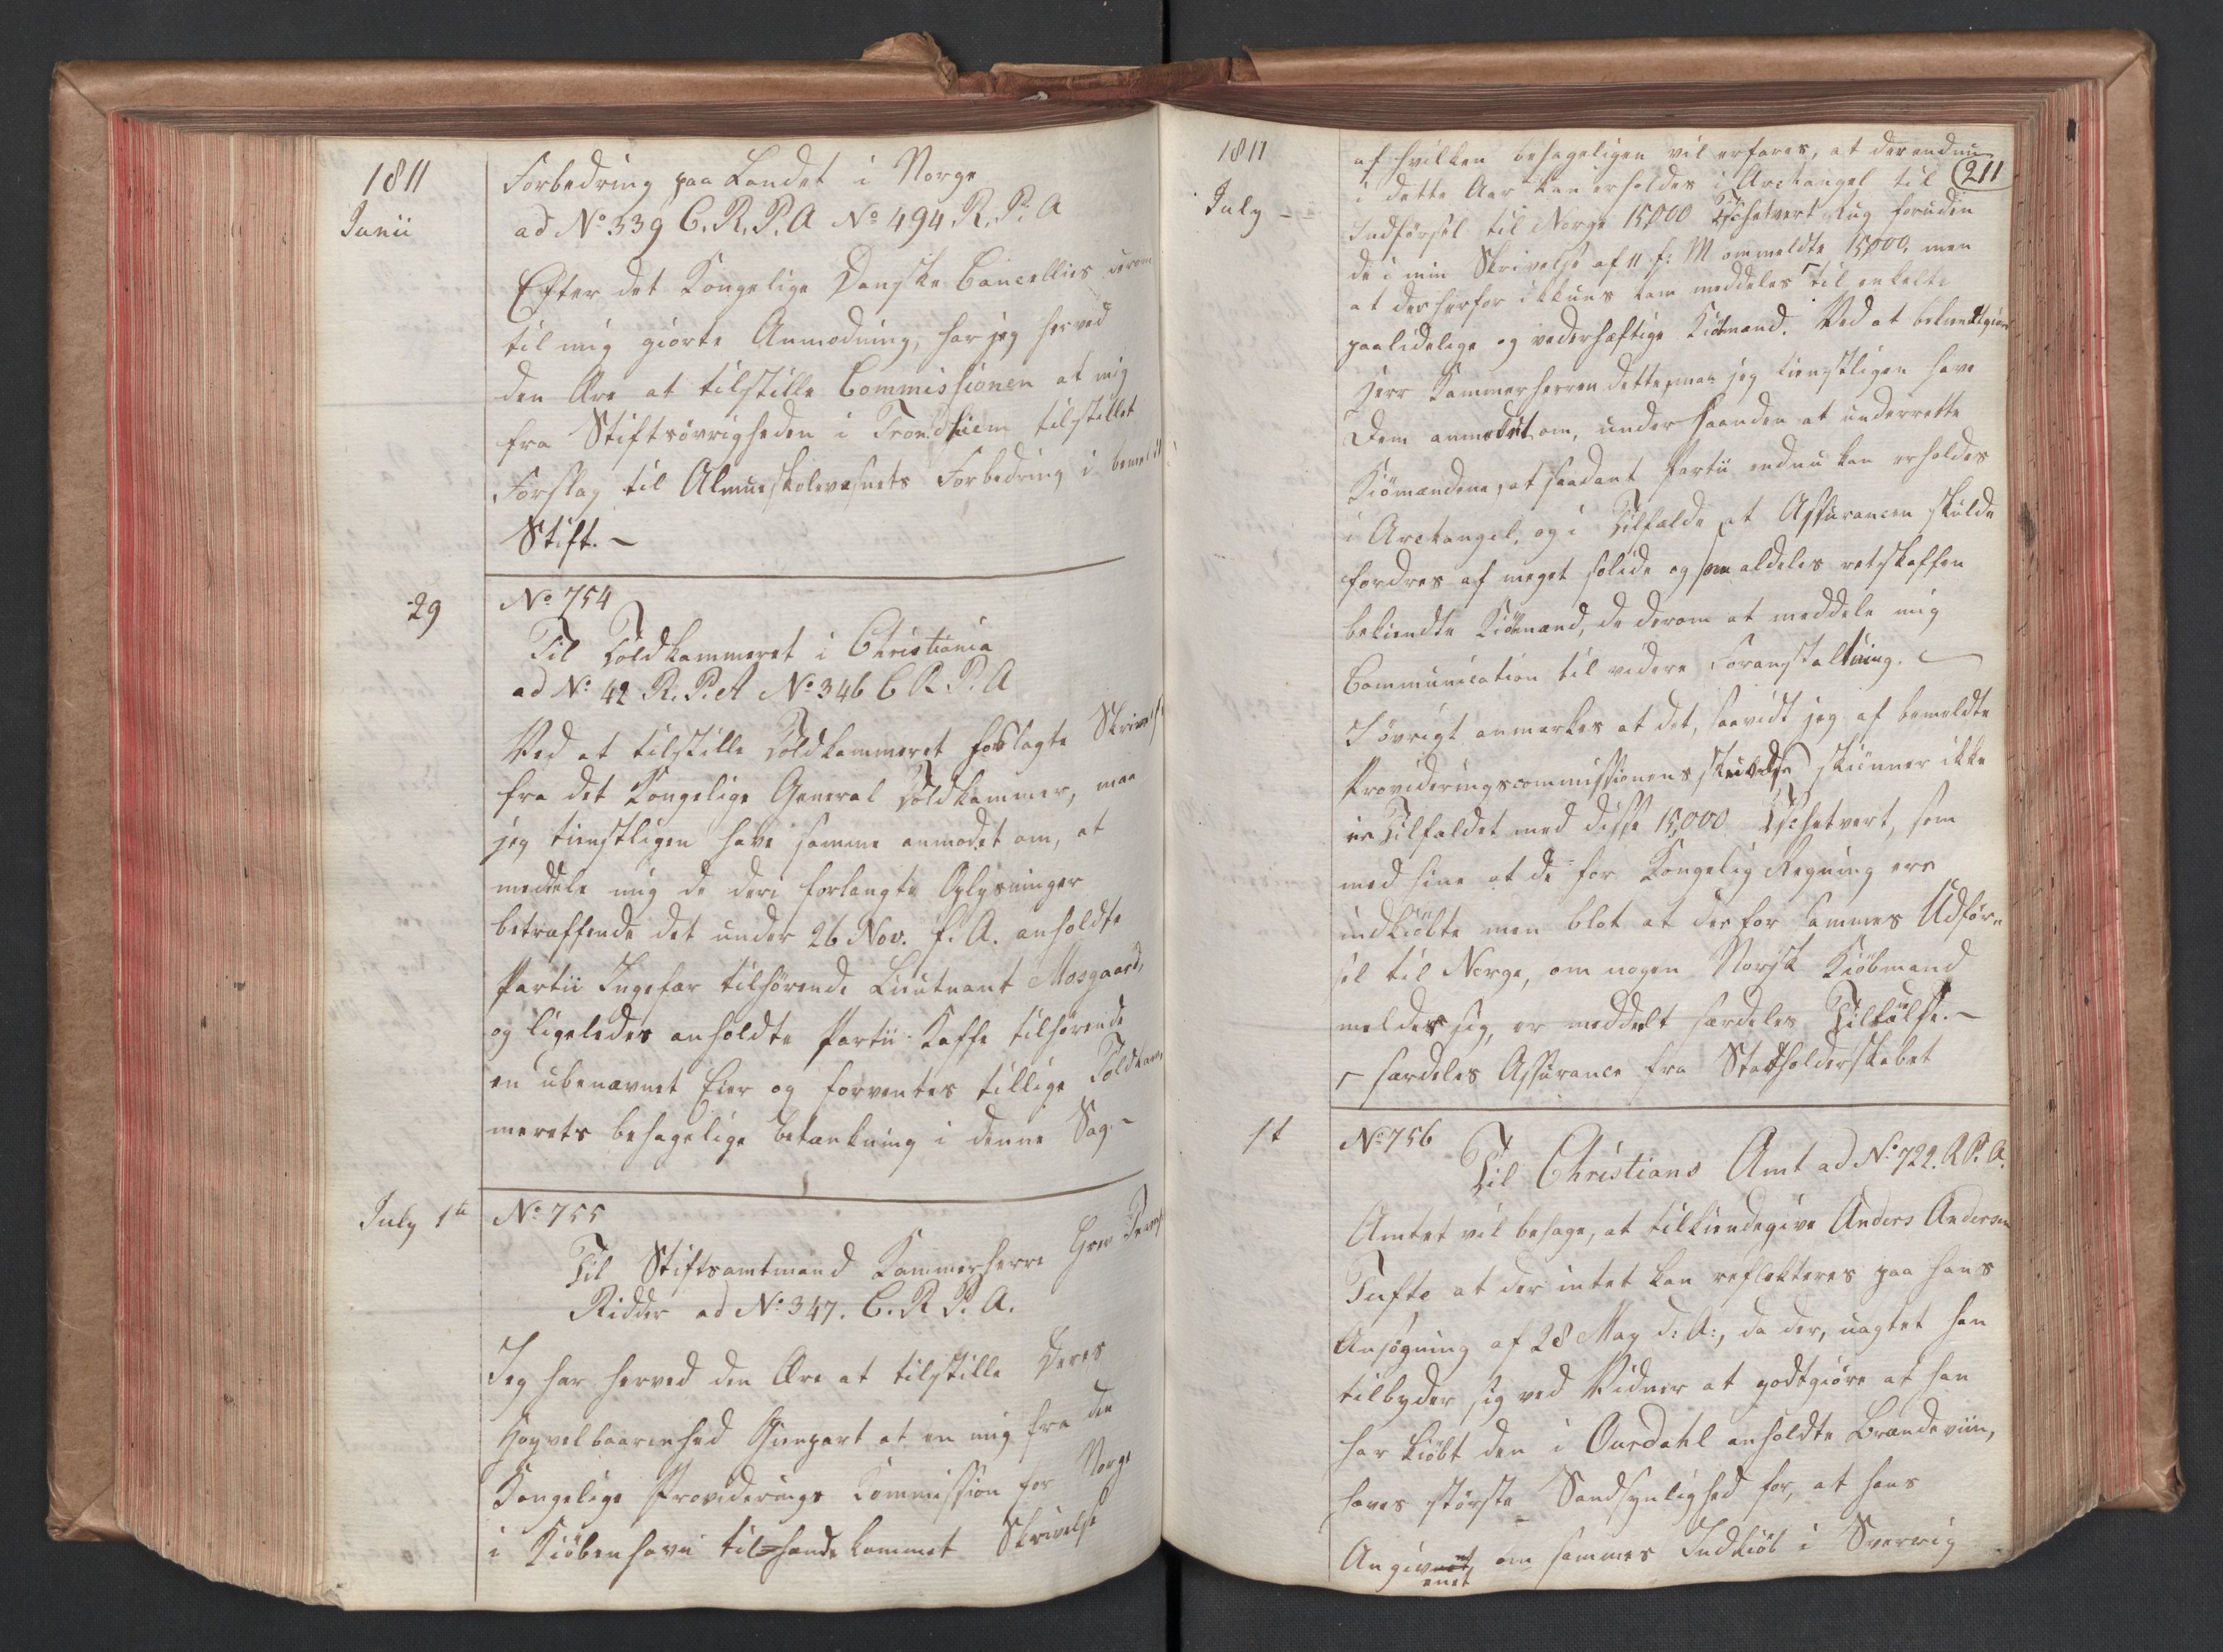 1811
Junii
Forbedring paa Landet i Norge
ad No 339 C. R. P. A No 494 R. P. A
Efter det Kongelige Danske Cancellies derom
til mig giorte Anmodning, har jeg herved
den Ære at tilstille Commissionen et mig
fra Stiftsøvrigheden i Trondhiem tilstillet
Forslag til Almueskolevæsnets Forbedring i bemeldte
Stift. –
29
No 754
Til Toldkammeret i Christiania
ad No 42 R. P. A No 346 C R. P. A
Ved at tilstille Toldkammeret hoslagte Skrivelse
fra det Kongelige General Toldkammer, maa
jeg tienstligen have samme anmodet om, at
meddele mig de deri forlangte Oplysninger
betræffende det under 26 Nov. f. A. anholdte
Partii Ingefær tilhørende Lieutnant Mosgaard,
og ligeledes anholdte Partii Kaffe tilhørende
en ubenævnet Eier og forventes tillige Toldkam,
merets behagelige Betænkning i denne Sag. –
July 1te
No 755
Til Stiftsamtmand Kammerherre Grev
Ridder ad No 347. C. R. P. A.
Jeg har herved den Ære at tilstille Deres
Høyvelbaarenhed Gienpart af en mig fra den
Kongelige Provideerings Kommission for Norge
i Kiøbenhavn tilhænde kommet Skrivelse
1811
July –
211
af hvilken behageligen vil erfares, at der endnu
i dette Aar kan erholdes i Archangel til
Indførsel til Norge 15,000 Tschetvert Rug foruden
de i min Skrivelse af 11 f: M ommeldte 15,000, men
at der herfor ikkuns kan meddeles ⌈ til enkelte
paalidelige og vederhæftige Kiømænd. Ved at bekiendtgiøre
Herr Kammerherren dette, maa jeg tienstligen have
Dem anmodet om, under Haanden at underrette
Kiømændene, at saadant Partii endnu kan erholdes
i Archangel, og i Tilfælde at Assurancen skulde
fordres af meget solide og som aldeles retskaffen
bekiendte Kiømænd, da derom at meddele mig
Communication til videre Foranstaltning. –
I øvrigt anmærkes at det, saavidt jeg af bemeldte
Provideringscommissionens Skrivelse skiønner ikke
er Tilfældet med disse 15,000 Tschetvert, som
med hine at de for Kongelig Regning ere
indkiøbte men blot at der for sammes Udfør,
sel til Norge, om nogen Norsk Kiøbmand
melder sig, er meddelt særdeles Tilladelse. –
⌈ særdeles Assurance fra Statholderskabet
1t
No 756
Til Christians Amt ad No 722. R P. A.
Amtet vil behage, at tilkiendegive Anders Andersen
Tufte at der intet kan reflekteres paa hans
Ansøgning af 28 May d: A:, da der, uagtet han
tilbyder sig ved Vidner at godtgiøre at han
har kiøbt den i Ourdahl anholdte Brændeviin,
haves største Sandsynlighed for, at hans
Angivnet om sammes Indkiøb i Sverrig
enet